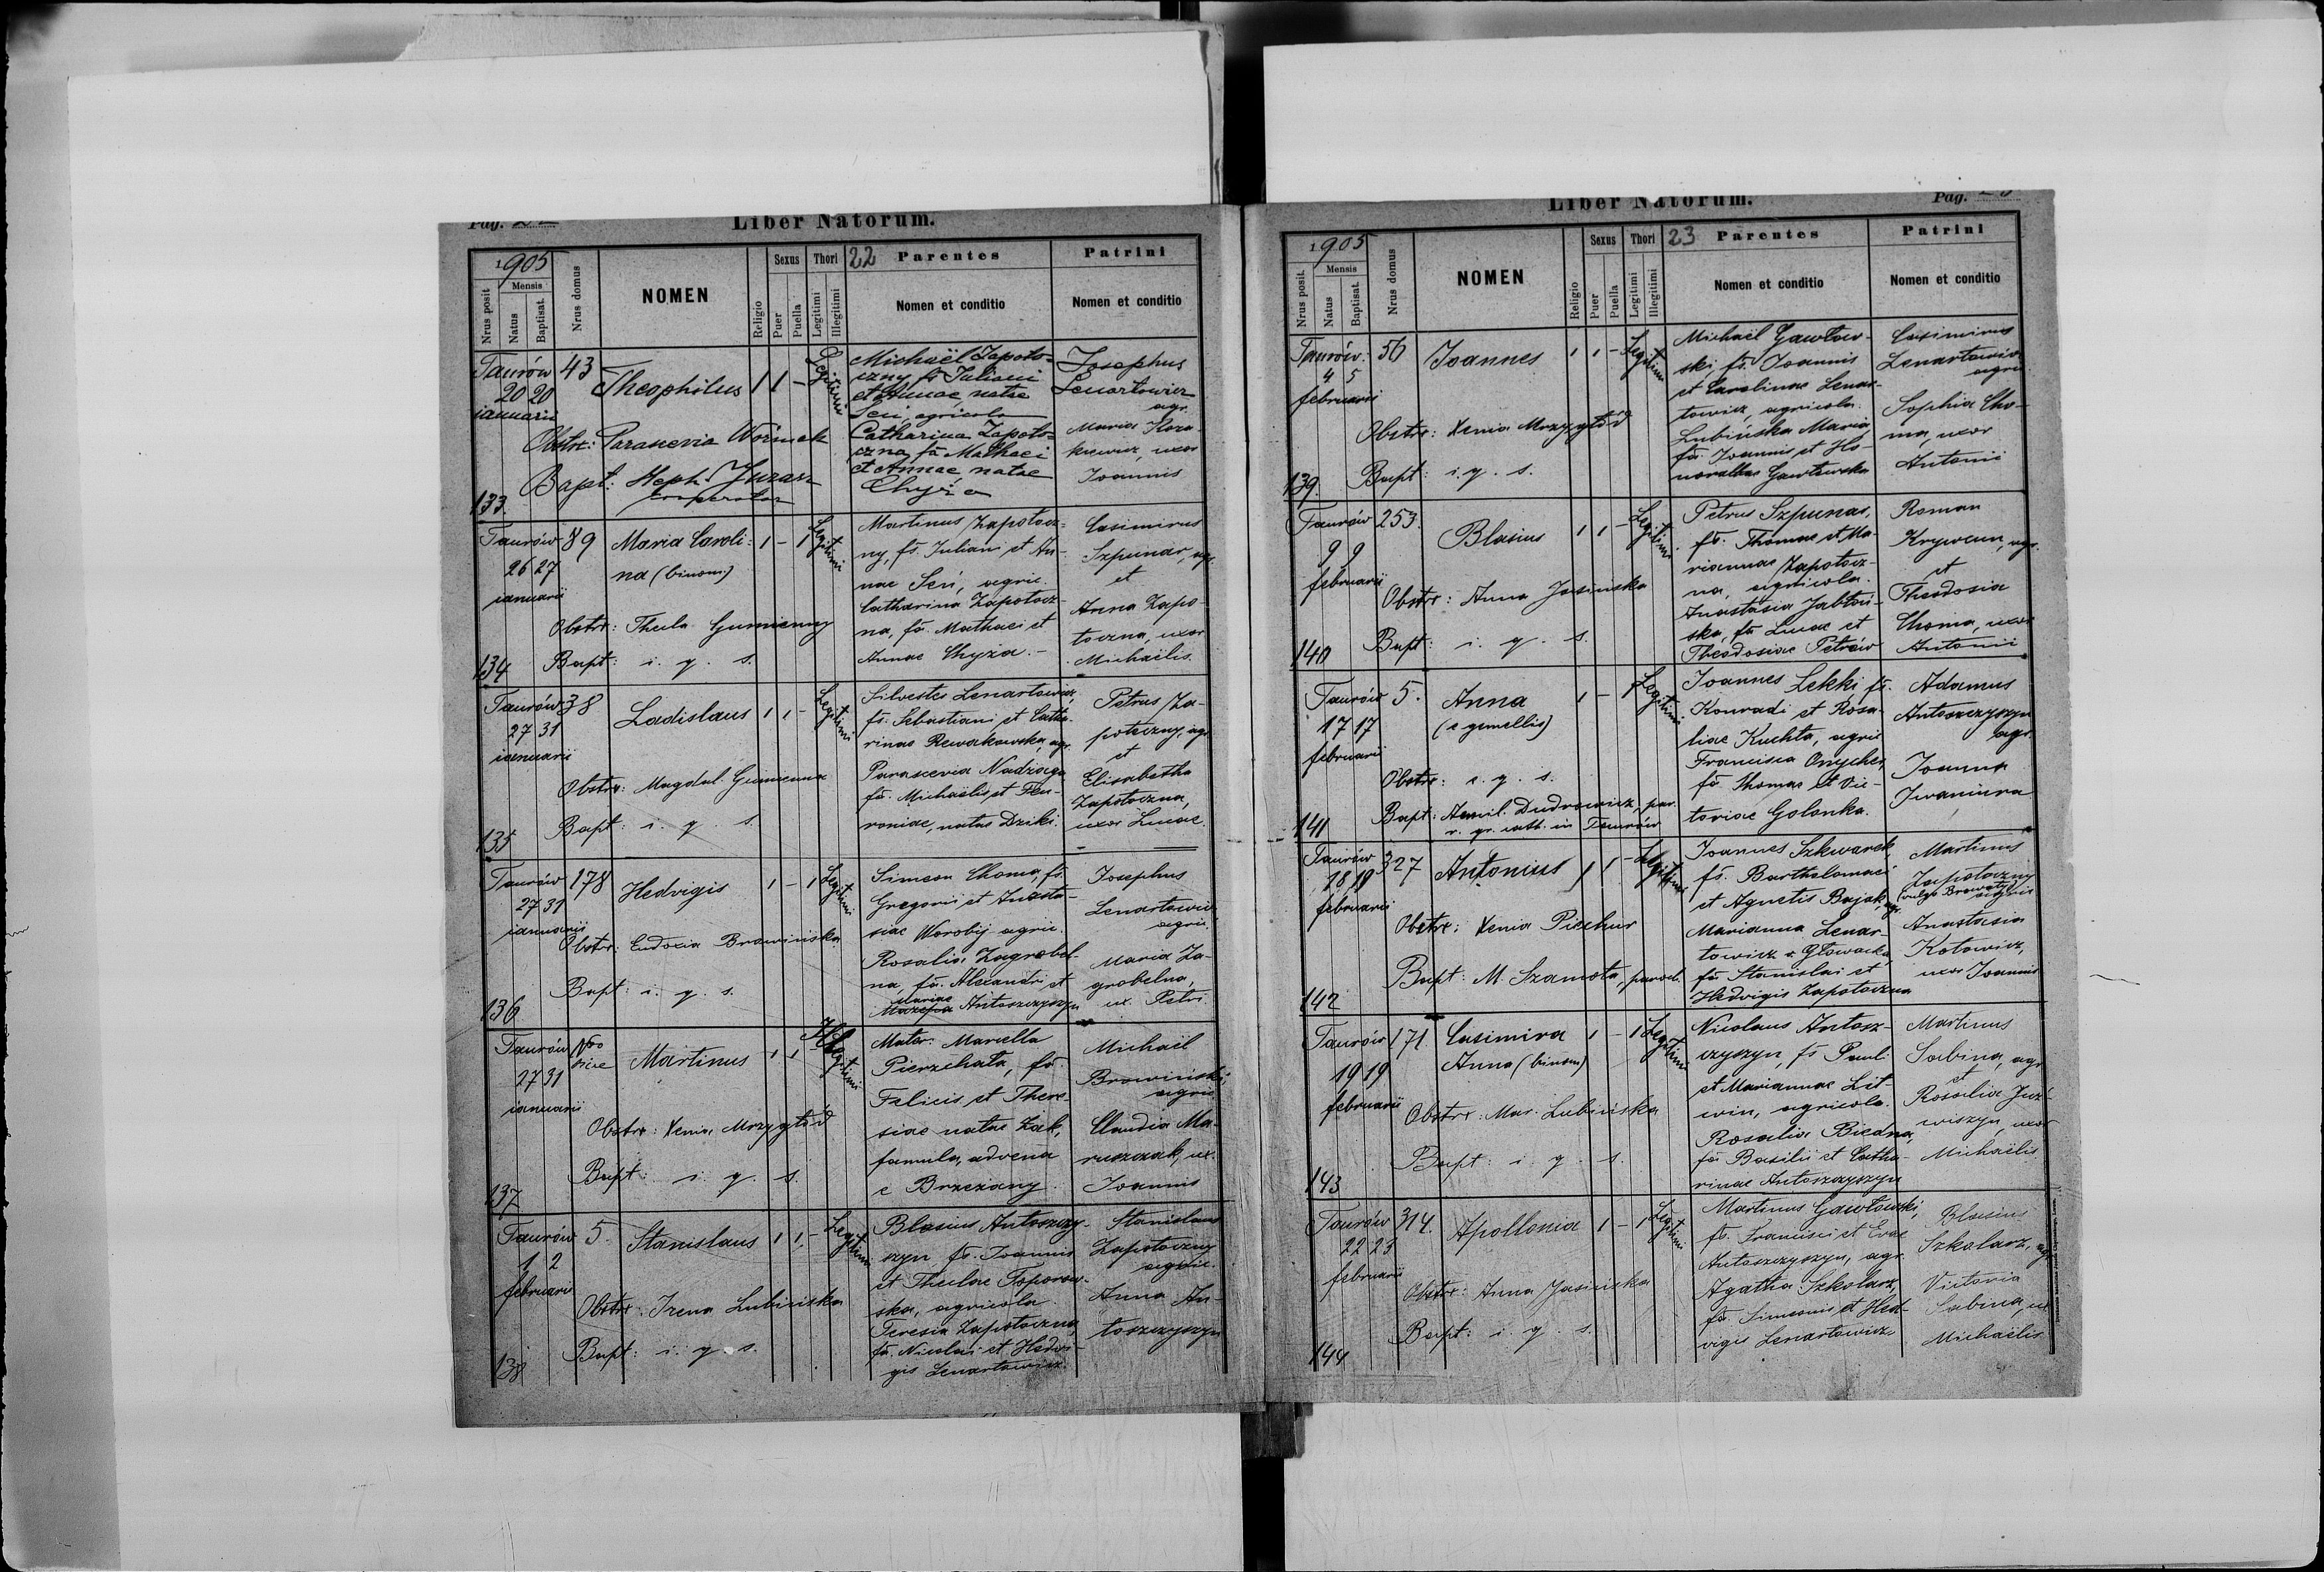 Pag. 22
Liber Natorum.
1905
Nrus posit
Mensis
Natus
Baptisat.
Nrus domus
NOMEN
Religio
Sexus
Puer
Puella
Thori
Legitimi
Illegitimi
22
Parentes
Nomen et conditio
Patrini
Nomen et conditio
Taurów 43
20 20
ianuarii
Theophilus 1 1 -
Legitimi
Obstr: Parascevia Woźniak
Bapt: Steph. Juzarz
cooperator
133.
Michaël Zapoto=
czny fs Juliani
et Annae, natae
Seń, agricola
Catharina Zapoto=
czna fa Mathaei
et Annae natae
Chyża
Josephus
Lenartowicz
agr.
Maria
Joannis
Taurów 89
26 27
ianuarii
Maria Caroli: 1 - 1
na (binom.)
Legitimi
Obstr: Thecla Gumienny
Bapt: i. q. s.
134
Martinus Zapotocz=
ny, fs. Juliani et An-
nae Seń, agric.
Catharina Zapotocz-
na, fa. Mathaei et
Annae Chyża. -
Casimirus
Szpunar, agr.
et
Anna Zapo-
toczna, uxor
Michaëlis.
Taurów 38
27 31
ianuarii
Ladislaus 1 1 -
Legitimi
Obstr: Magdal. Gumienna
Bapt: i. q. s.
135
Silvester Lenartowicz,
fs. Sebastiani et Catha-
rinae Rewakowska, agr.
Parascevia Nadziaga
fa. Michaëlis et Feu-
roniae, natae Dziki.
Petrus Za-
potoczny, agr.
et
Elisabetha
Zapotoczna,
uxor Lucae.
Taurów 178
27 31
ianuarii
Hedvigis 1 - 1
Legitimi
Obstr: Eudoxia Browińska
Bapt: i. q. s.
136
Simeon Choma, fs.
Gregorii et Anasta-
siae Worobij agric.
Rosalia Zagrobel-
na, fa. Alexandri et
Mariae
Antoszczyszyn
Josephus
Lenartowicz
agric.
Maria Za-
grobelna,
ux. Petri.
Taurów Nro
27 31
ianuarii
Martinus 1 1 -
Illegitimi
Obstr: Xenia Mrzygłód
Bapt: i. q. s.
137
Mater: Marcella
Pierzchała, fa.
Felicis et There-
siae natae Żak,
famula, advena
e Brzeżany.
Michaël
Browiński
agric
Claudia Ma-
ruszczak, ux.
Joannis
Taurów 5.
1 2
februarii
Stanislaus 1 1 -
Legitimi
Obstr: Irena Lubińska
Bapt: i. q. s.
138
Blasius Antoszczy-
szyn fs. Joannis
et Theclae Toporow-
ska, agricola.
Teresia Zapotoczna,
fa. Nicolai et Hedvi-
gis Lenartowicz.
Stanislaus
Zapotoczny
agric.
Anna An-
toszczyszyn
Liber Natorum.
Pag. 23
1905
Nrus posit
Mensis
Natus
Baptisat.
Nrus domus
NOMEN
Religio
Sexus
Puer
Puella
Thori
Legitimi
Illegitimi
23
Parentes
Nomen et conditio
Patrini
Nomen et conditio
Taurów 56
4 5
februarii
Joannes 1 1 -
Legitimi
Obstr: Xenia Mrzygłód
Bapt: i. q. s.
139.
Michaël Gawłow-
ski, fs. Joannis
et Carolinae Lenar-
towicz, agricola.
Lubińska Maria,
fa. Joannis et Ho-
noratae Gawłowska
Casimirus
Lenartowicz
agric
Sophia Cho-
ma, uxor
Antonii
Taurów 253.
9 9
februarii
Blasius 1 1 -
Legitimi
Obstr: Anna Jasińska
Bapt: i. q. s.
140
Petrus Szpunar,
fs. Thomae et Ma-
riannae Zapotocz-
na, agricola.
Anastasia Jabłoń-
ska, fa Lucae et
Theodosiae Petrów
Roman
Krywcun, agr.
et
Theodosia
Choma, uxor
Antonii
Taurów 5.
17 17
februarii
Anna 1 - 1
(e gemellis)
Legitimi
Obstr: i. q. s.
Bapt: Aemil. Dudrowicz, par.
r. gr. cath. in Taurów
141
Joannes Lekki, fs.
Konradi et Rosa-
liae Kuchta, agric
Francisca
fa Thomae et Vic-
toriae Golonka.
Adamus
Antoszczyszyn
agr.
Joanna
Iwaniura
Taurów 327
18 19
februarii
Antonius 1 1 -
Legitimi
Obstr: Xenia Piechur
Bapt: M. Szamota, paroch.
142
Joannes Szkwarek,
fs. Bartholomaei
et Agnetis Bajak, agr.
Marianna Lenar-
towicz v. Głowacka,
fa Stanislai et
Hedvigis Zapotoczna
Martinus
Zapotoczny
agric
Anastasia
Kotowicz,
uxor Joannis
Taurów 171.
19 19
februarii
Casimira 1 - 1
Anna (binom)
Legitimi
Obstr: Mar. Lubińska
Bapt: i. q. s.
143
Nicolaus Antosz-
czyszyn, fs Pauli
et Mariannae Lit-
win, agricola.
Rosalia Biedna,
fa Basilii et Catha-
rinae Antoszczyszyn
Martinus
Sabina, agr
et
Rosalia Juź-
wiszyn, uxor
Michaëlis.
Taurów 314.
22 23
februarii
Apollonia 1 - 1
Legitimi
Obstr: Anna Jasińska
Bapt: i. q. s.
144
Martinus Gawłowski,
fs. Francisci et Evae
Antoszczyszyn, agr.
Agatha Szkolarz,
fa Simeonis et Hed-
vigis Lenartowicz
Blasius
Szkolarz, agr
Victoria
Sabina, ux
Michaëlis